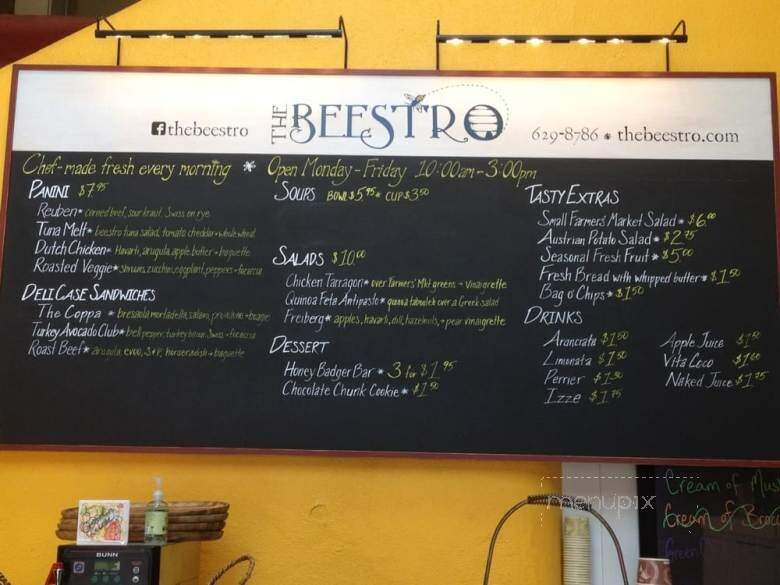 thebeestro
THE BEESTRO
629-8786 * thebeestro.com
Chef-made fresh every morning * Open Monday-Friday 10:00am-3:00pm
PANINI $7.95
Reuben * corned beef, sour kraut, Swiss on rye
Tuna Melt * beestro tuna salad, tomato, cheddar + whole wheat
Dutch Chicken * Havarti, arugula, apple butter + baguette
Roasted Veggie * zucchini, eggplant, peppers + focaccia
DELI CASE SANDWICHES
The Coppa * bresaola, mortadella, salami, provolone + baguette
Turkey Avocado Club * bell pepper, turkey bacon, Swiss + focaccia
Roast Beef * arugula, evoo, S+P, horseradish + baguette
SOUPS BOWL $5.95 * CUP $3.50
SALADS $10.00
Chicken Tarragon * over Farmers' Mkt greens + vinaigrette
Quinoa Feta Antipasto * quinoa tabouleh over a Greek salad
Freiberg * apples, havarti, dill, hazelnuts, + pear vinaigrette
DESSERT
Honey Badger Bar * 3 for $1.95
Chocolate Chunk Cookie * $1.50
TASTY EXTRAS
Small Farmers' Market Salad * $6.00
Austrian Potato Salad * $2.75
Seasonal Fresh Fruit * $5.00
Fresh Bread with whipped butter * $1.50
Bag o' Chips * $1.50
DRINKS
Aranciata $1.50
Limonata $1.50
Perrier $1.50
Izze $1.75
Apple Juice $1.50
Vita Coco $1.60
Naked Juice $1.75
menupix
BUNN
Cream of
Cream of
Green